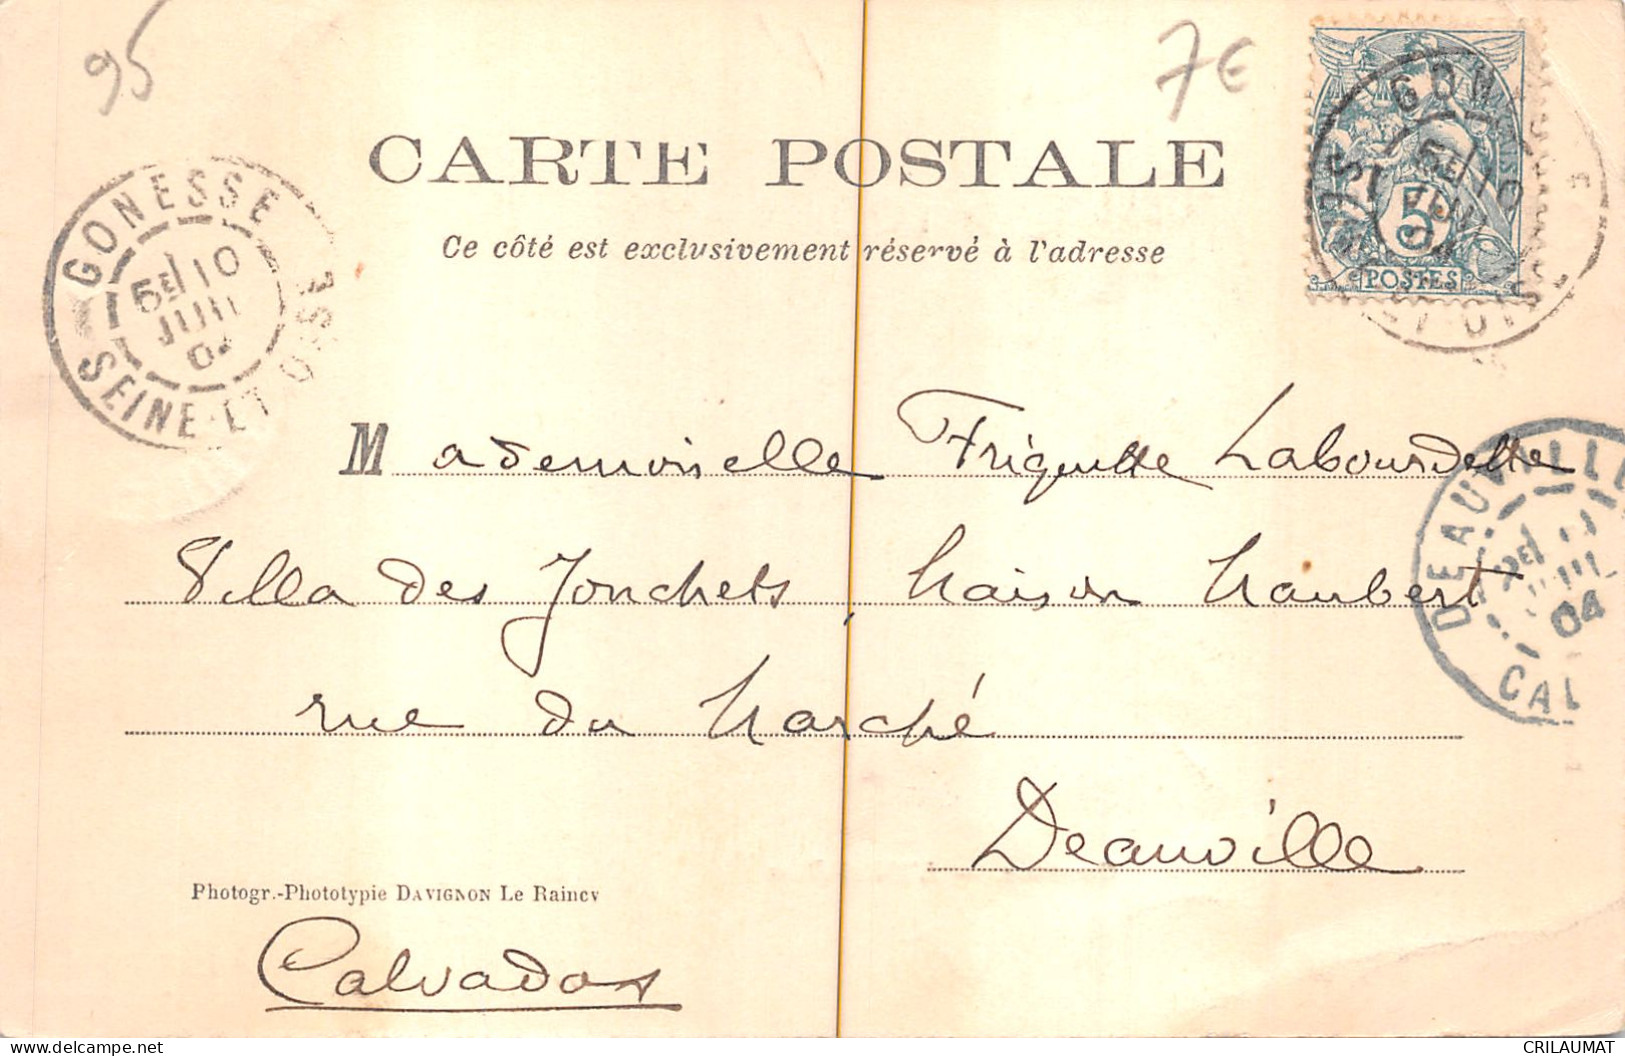 95
7€
CARTE POSTALE
Ce côté est exclusivement réservé à l'adresse
GONESSE
5E 10
JUIL
SEINE-ET-OISE
5
POSTES
Mademoiselle Labourdette
Villa des Jonchets, Maison Maubert
rue du Marché
Deauville
Calvados
DEAUVILLE
04
CAL
Photogr.-Phototypie DAVIGNON Le Raincy
CRILAUMAT